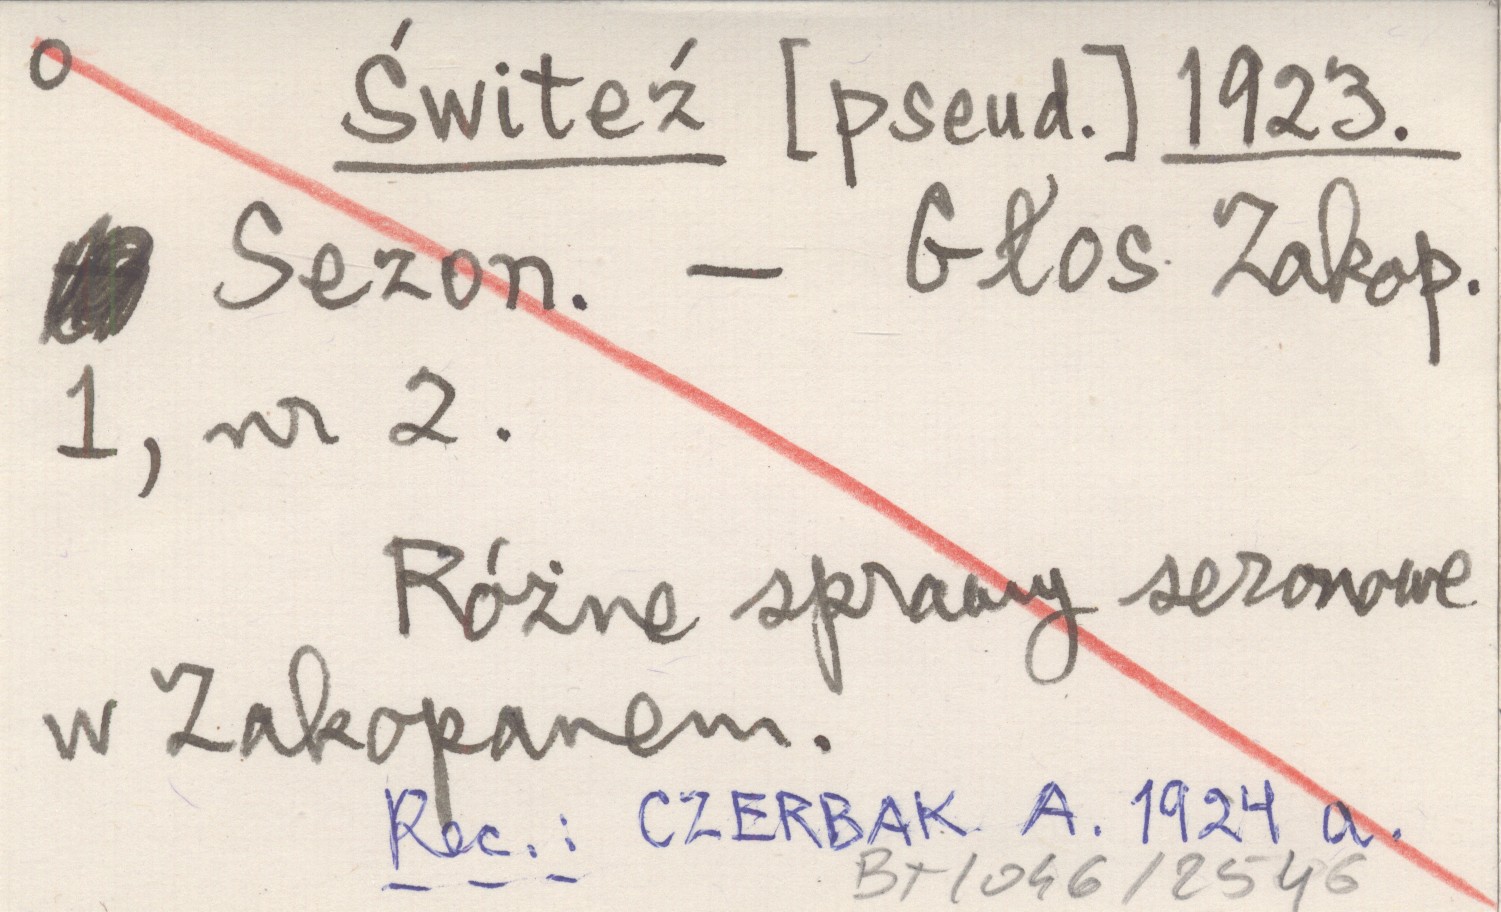 o Świteź [pseud.] 1923.
Sezon. — Głos Zakop.
1, nr 2.
Różne sprawy sezonowe
w Zakopanem.
Rec.: CZERBAK A. 1924 a.
BT/046/2546